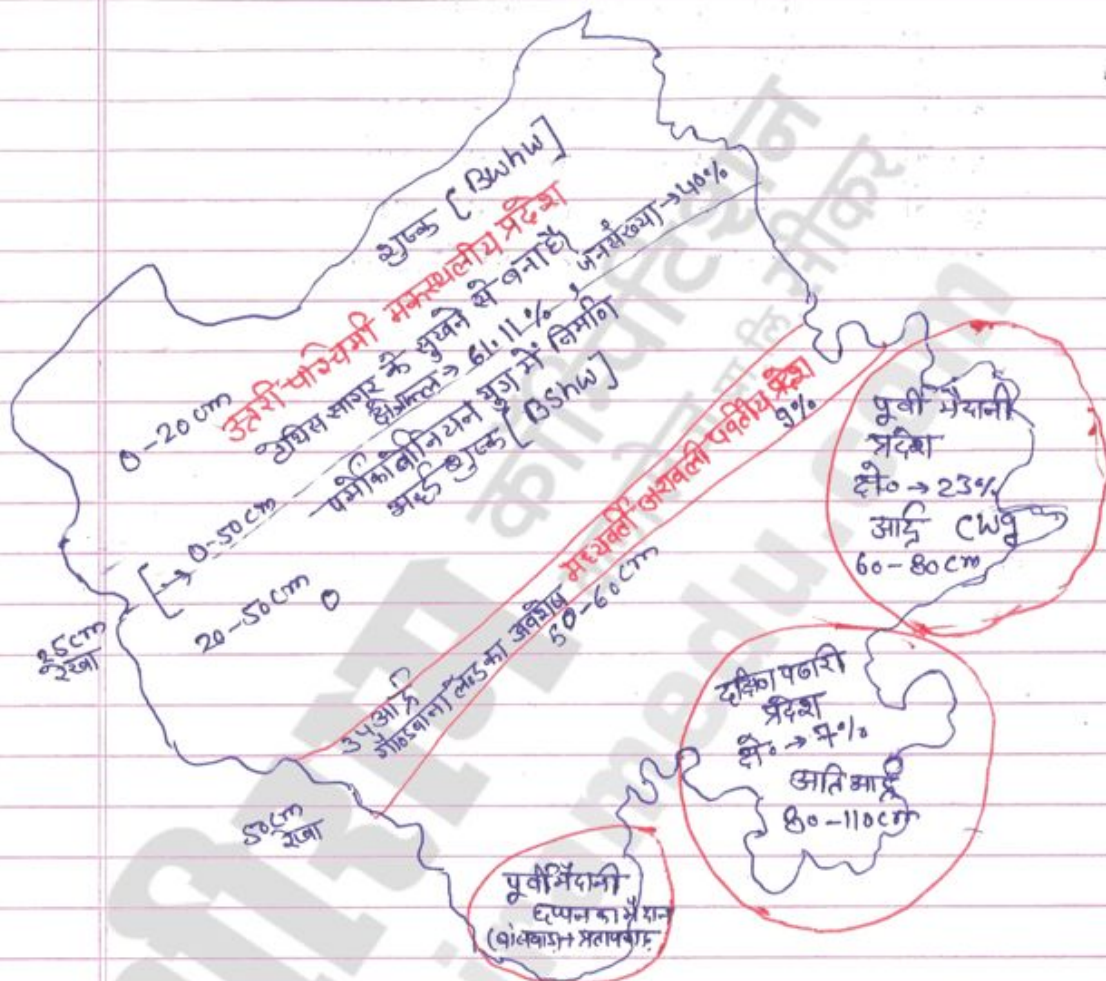 शुष्क [BWhw]
उत्तरी पश्चिमी मरूस्थलीय प्रदेश
0-20cm
टेथिस सागर के सुखने से बना है
क्षेत्रफल → 61.11% , जनसंख्या → 40%
→ 0-50cm
पर्मोकार्बोनियन युग में निर्माण
अर्द्ध शुष्क [BShw]
20-50cm
25cm
रेखा
मध्यवर्ती अरावली पर्वतीय प्रदेश
9%
उपआर्द्र
गोंडवाना लैंड का अवशेष
50-60cm
50cm
रेखा
पूर्वी मैदानी
प्रदेश
क्षे० → 23%
आर्द्र CWg
60-80cm
दक्षिण पठारी
प्रदेश
क्षे० → 7%
अति आर्द्र
80-110cm
पूर्वी मैदानी
छप्पन का मैदान
(बांसवाड़ा+प्रतापगढ़